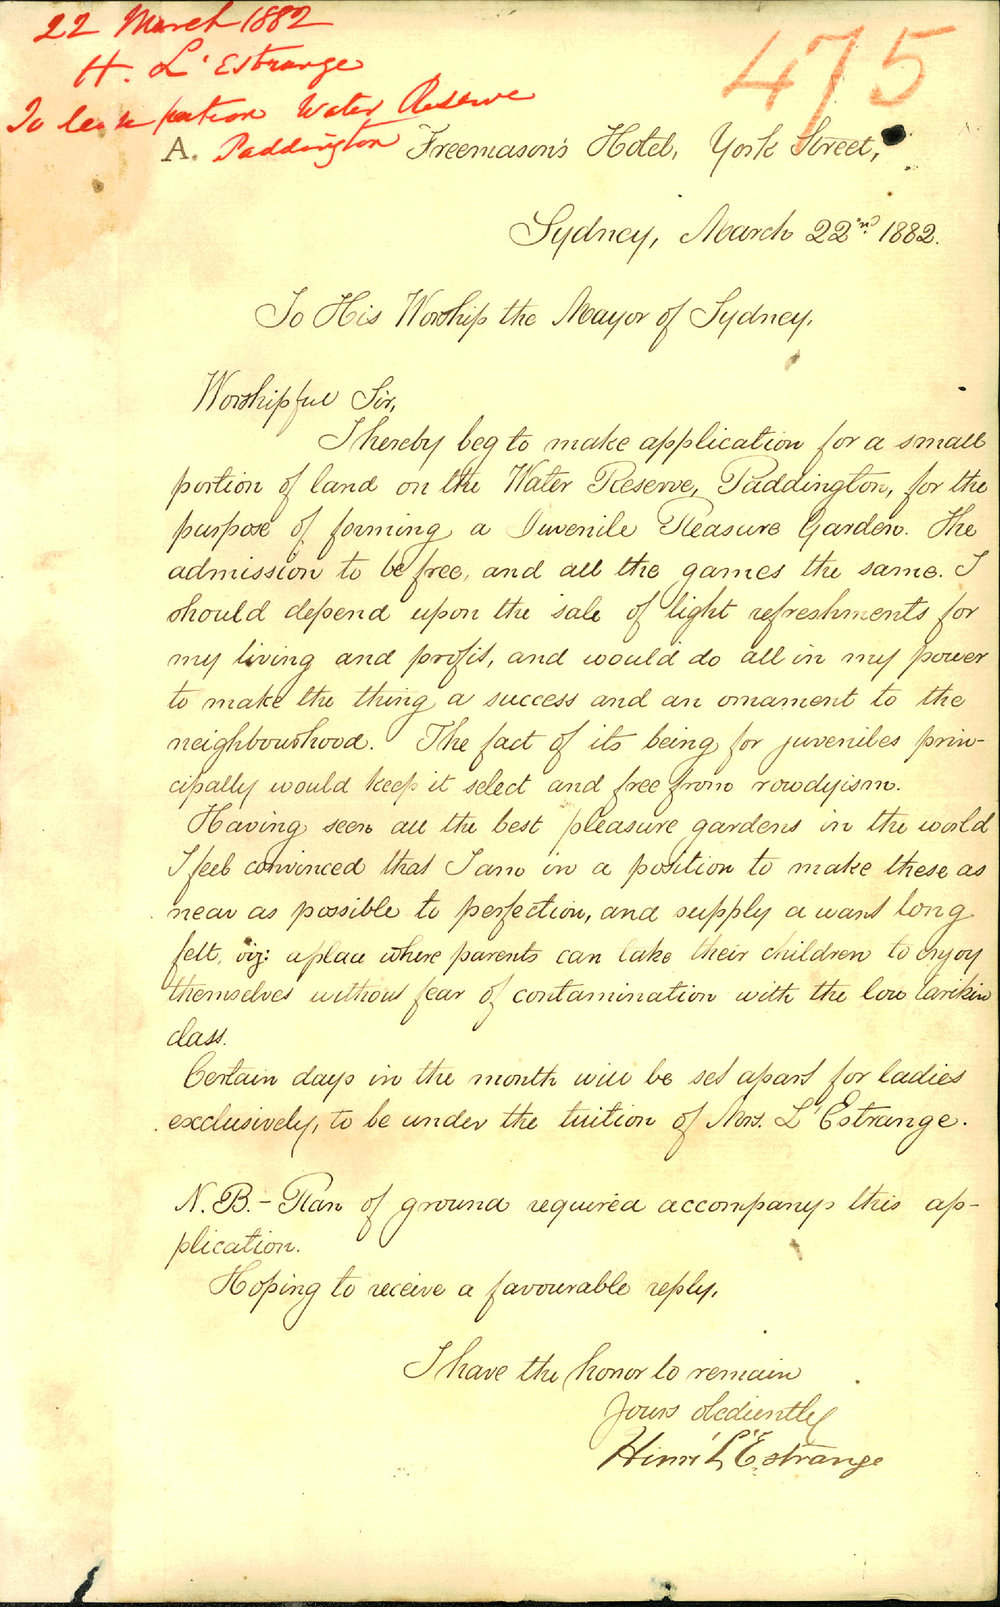 22 March 1882
475
H. L'Estrange
To lease portion Water Reserve
A. Paddington
Freemason's Hotel, York Street,
Sydney, March 22nd 1882.
To His Worship the Mayor of Sydney,
Worshipful Sir,
I hereby beg to make application for a small
portion of land on the Water Reserve, Paddington, for the
purpose of forming a Juvenile Pleasure Garden. The
admission to be free, and all the games the same. I
should depend upon the sale of light refreshments for
my living and profit, and would do all in my power
to make the thing a success and an ornament to the
neighbourhood. The fact of its being for juveniles prin-
cipally would keep it select and free from rowdyism.
Having seen all the best pleasure gardens in the world
I feel convinced that I am in a position to make these as
near as possible to perfection, and supply a want long
felt, viz: a place where parents can take their children to enjoy
themselves without fear of contamination with the low larikin
class.
Certain days in the month will be set apart for ladies
exclusively, to be under the tuition of Mrs. L'Estrange.
N.B. - Plan of ground required accompanys this ap-
plication.
Hoping to receive a favourable reply,
I have the honor to remain
Yours obediently
Henri L'Estrange